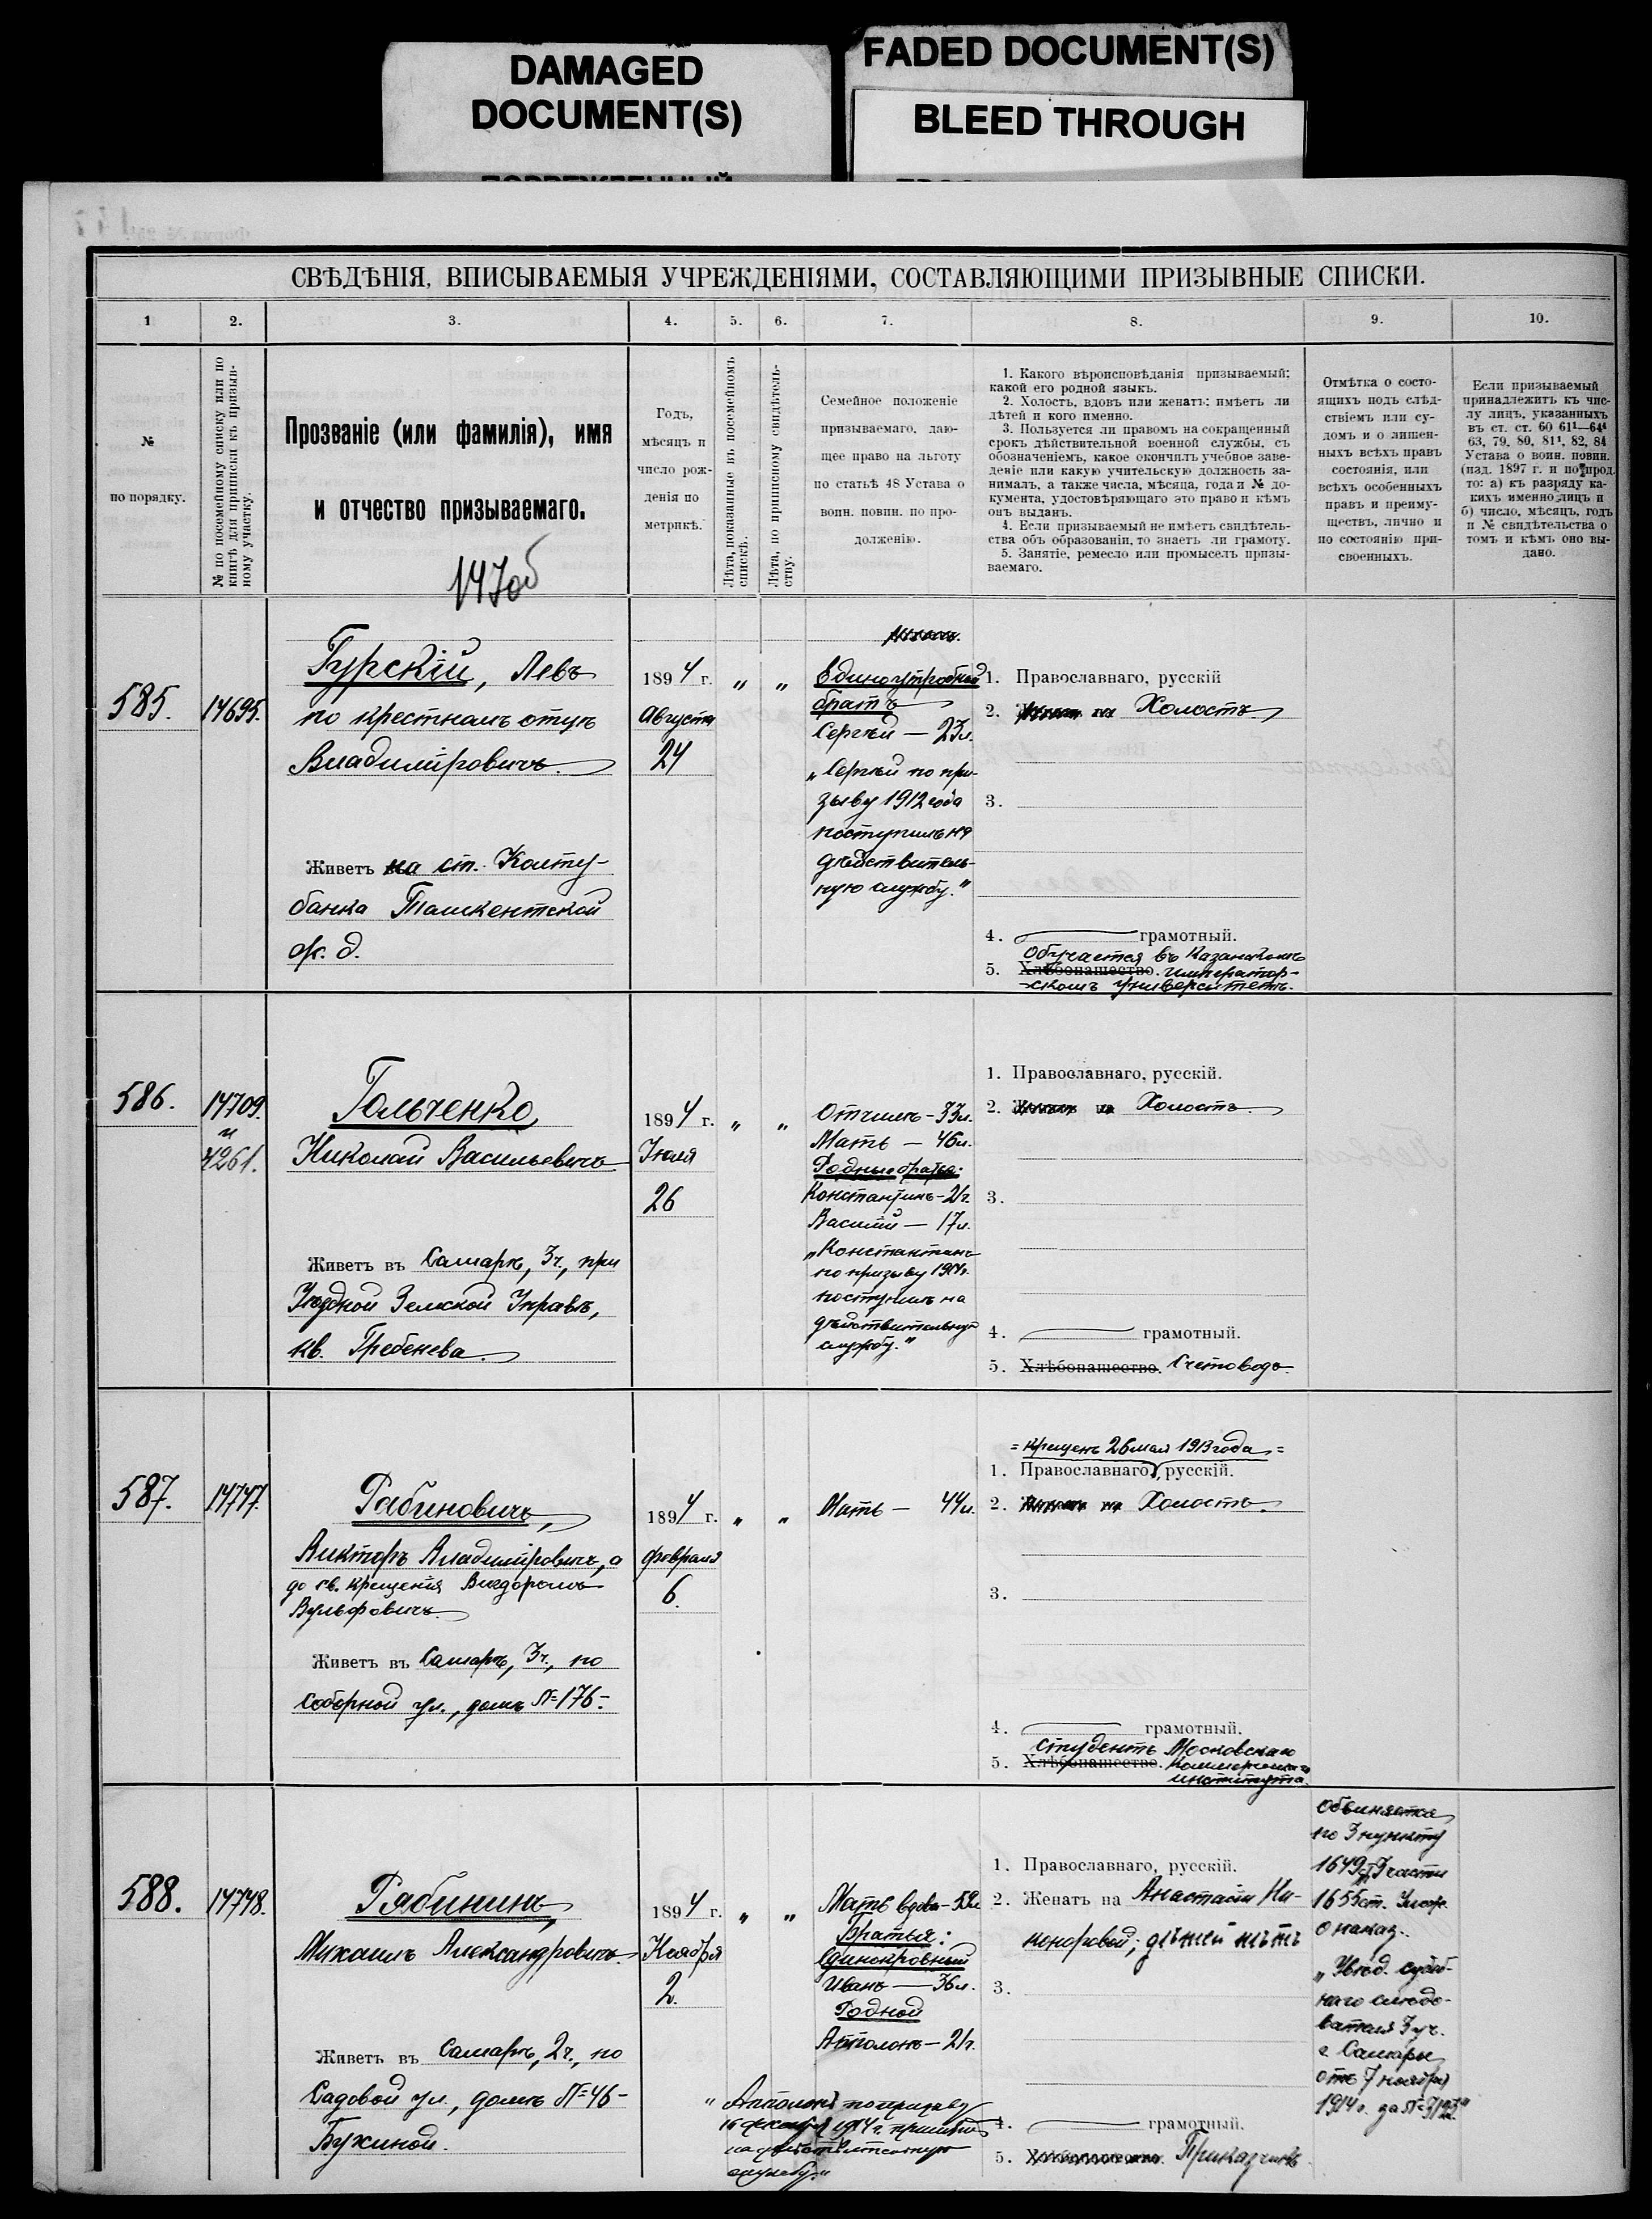 DAMAGED
DOCUMENT(S)
FADED DOCUMENT(S)
BLEED THROUGH
СВѢДѢНІЯ, ВПИСЫВАЕМЫЯ УЧРЕЖДЕНІЯМИ, СОСТАВЛЯЮЩИМИ ПРИЗЫВНЫЕ СПИСКИ.
1 2. 3. 4. 5. 6. 7. 8. 9. 10.
№
по порядку.
№ по посемейному списку или по
книгѣ для приписки къ призыв-
ному участку.
Прозваніе (или фамилія), имя
и отчество призываемаго.
147об
Годъ,
мѣсяцъ и
число рож-
денія по
метрикѣ.
Лѣта, показанные въ посемейномъ
спискѣ.
Лѣта, по приписному свидѣтель-
ству.
Семейное положеніе
призываемаго, даю-
щее право на льготу
по статьѣ 48 Устава о
воин. повин. по про-
долженію.
1. Какого вѣроисповѣданія призываемый;
какой его родной языкъ.
2. Холостъ, вдовъ или женатъ: имѣетъ ли
дѣтей и кого именно.
3. Пользуется ли правомъ на сокращенный
срокъ дѣйствительной военной службы, съ
обозначеніемъ, какое окончилъ учебное заве-
деніе или какую учительскую должность за-
нималъ, а также числа, мѣсяца, года и № до-
кумента, удостовѣряющаго это право и кѣмъ
онъ выданъ.
4. Если призываемый не имѣетъ свидѣтель-
ства объ образованіи, то знаетъ ли грамоту.
5. Занятіе, ремесло или промыселъ призы-
ваемаго.
Отмѣтка о состо-
ящихъ подъ слѣд-
ствіемъ или су-
домъ и о лишен-
ныхъ всѣхъ правъ
состоянія, или
всѣхъ особенныхъ
правъ и преиму-
ществъ, лично и
по состоянію при-
своенныхъ.
Если призываемый
принадлежитъ къ чис-
лу лицъ, указанныхъ
въ ст. ст. 60 61¹—64⁴
63, 79, 80, 81¹, 82, 84
Устава о воин. повин.
(изд. 1897 г. и по прод.
то: а) къ разряду ка-
кихъ именно лицъ и
б) число, мѣсяцъ, годъ
и № свидѣтельства о
томъ и кѣмъ оно вы-
дано.
585.
14695.
Гурскій, Левъ
по крестномъ отцѣ
Владиміровичъ.
Живетъ на ст. Колту-
банка Ташкентской
ж. д.
1894 г.
Августа
24
„ „
Единоутробный
братъ
Сергѣй — 23 л.
„Сергѣй по при-
зыву 1912 года
поступилъ на
дѣйствитель-
ную службу."
1. Православнаго, русскій
2. Холостъ.
3.
4. грамотный.
Обучается въ Казанскомъ
5. Хлѣбопашество. Император-
скомъ университетѣ.
586.
14709.
и
4261.
Гольченко
Николай Васильевичъ
Живетъ въ Самарѣ, 3 ч., при
Уѣздной Земской Управѣ,
кв. Гребенева.
1894 г.
Іюля
26
„ „
Отчимъ — 33 л.
Мать — 46 л.
Родные братья:
Константинъ — 21 г.
Василій — 17 л.
„Константинъ
по призыву 1914 г.
поступилъ на
дѣйствительную
службу."
1. Православнаго, русскій.
2. Женатъ на Холостъ.
3.
4. грамотный.
5. Хлѣбопашество. Счетоводъ.
587.
14747.
Рабиновичъ,
Викторъ Владиміровичъ, а
до св. крещенія Вигдоромъ
Вульфовичъ.
Живетъ въ Самарѣ, 3 ч., по
Соборной ул., домъ №176.
1894 г.
февраля
6.
„ „
Мать — 44 л.
= крещенъ 26 мая 1913 года =
1. Православнаго, русскій.
2. Женатъ на Холостъ.
3.
4. грамотный.
студентъ Московскаго
5. Хлѣбопашество. Коммерческаго
института.
588.
14748.
Рябининъ,
Михаилъ Александровичъ.
Живетъ въ Самарѣ, 2 ч., по
Садовой ул., домъ №46
Бужиной.
1894 г.
Ноября
2.
„ „
Мать вдова
Братья:
Единокровный
Иванъ — 36 л.
Родной
Апполонъ — 21 г.
„Апполонъ по призыву
1914 г. принятъ
на дѣйствительную
службу."
1. Православнаго, русскій.
2. Женатъ на Анастасіи Ни-
коноровой; дѣтей нѣтъ
3.
4. грамотный.
5. Хлѣбопашество. Приказчикъ
Обвиняется
по 3 пункту
1649 и 3 части
1655 ст. Улож.
о наказ.
„Увѣд. судеб-
наго слѣдо-
вателя 3 уч.
г. Самары
отъ 7 ноября
1914 г. за №